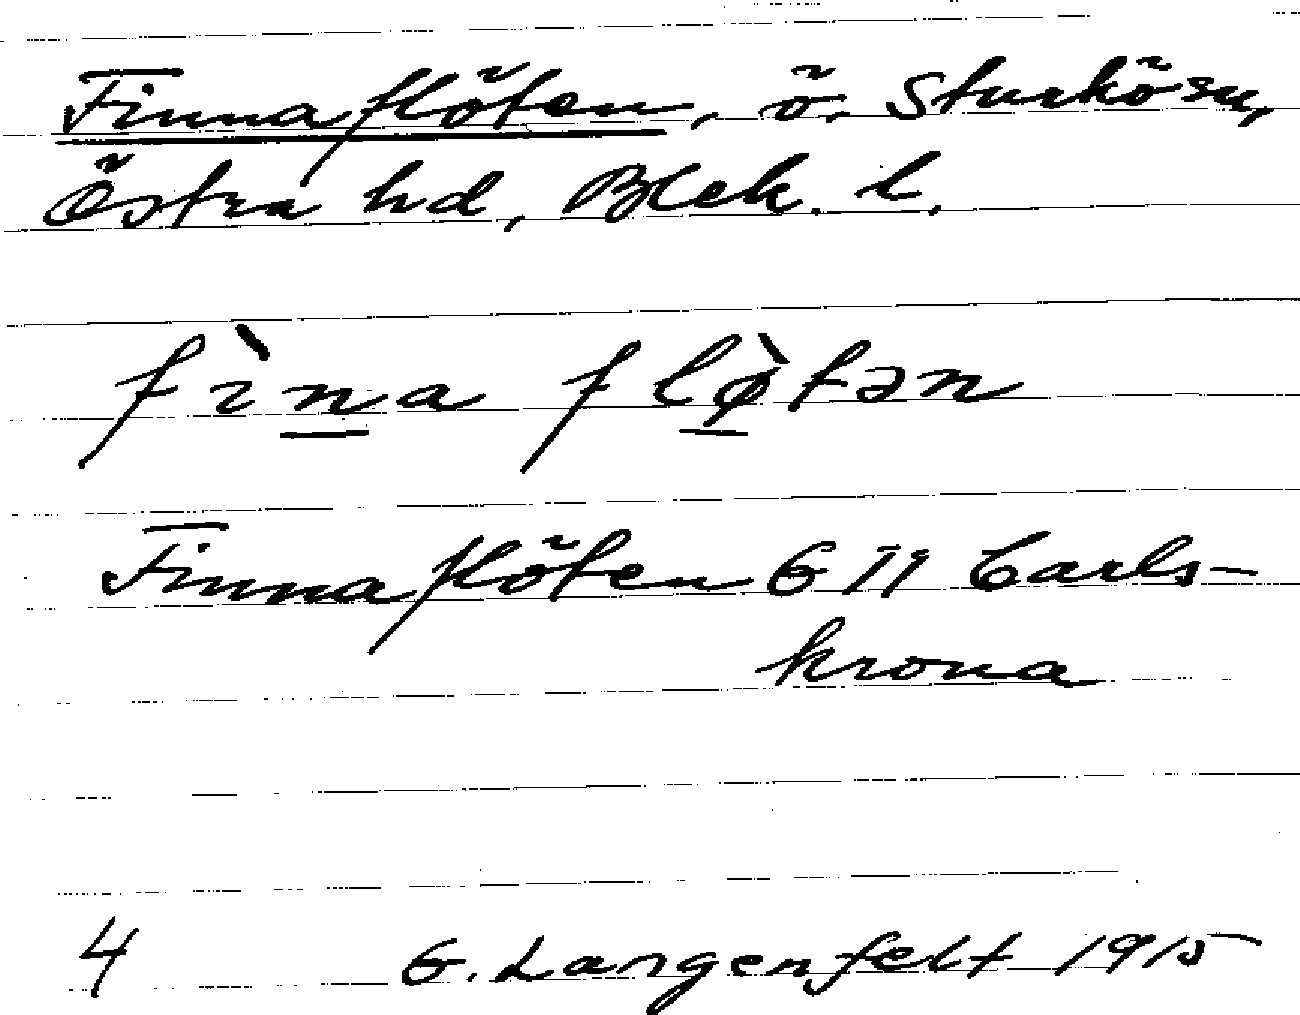 Finnaflöten, ö. Sturkö sn,
Östra hd, Blek. l.
fìna flø̀tən
Finnaflöten G 11 Carls-
krona
4 G. Langenfelt 1915